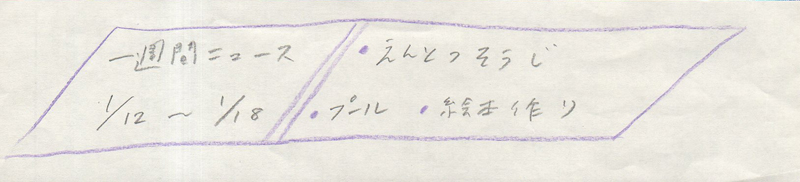 一週間ニュース
1/12 〜 1/18
・えんとつそうじ
・プール ・絵本作り